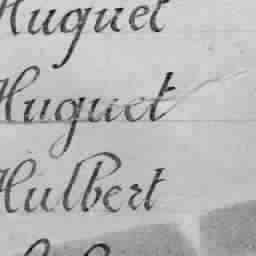 Huguet
Huguet
Hulbert